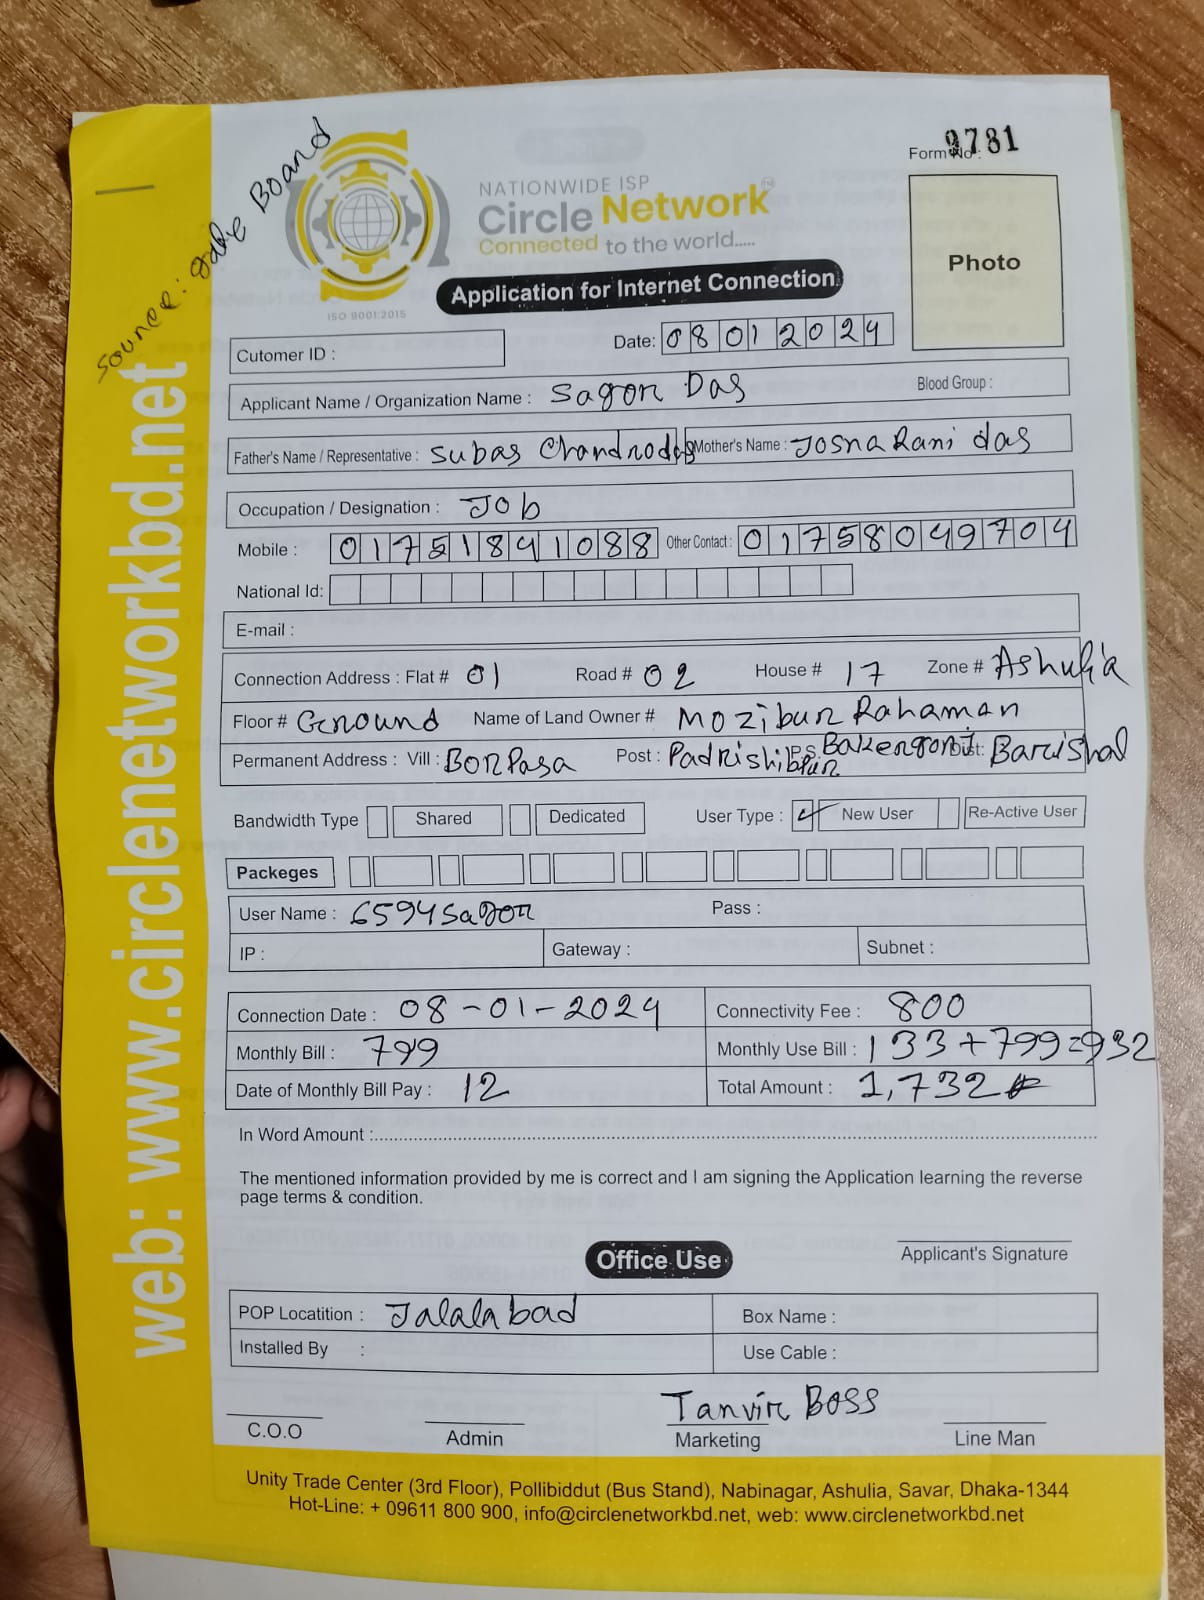 Source: gate Board
Form No : 9781
NATIONWIDE ISP
Circle Network™
Connected to the world.....
ISO 9001:2015
Application for Internet Connection
Photo
Cutomer ID :
Date: 08012024
Applicant Name / Organization Name : Sagor Das
Blood Group :
Father's Name / Representative : Subas Chandrodas Mother's Name : Josna Rani das
Occupation / Designation : Job
Mobile : 01751841088 Other Contact : 01758049704
National Id:
E-mail :
Connection Address : Flat # 01 Road # 02 House # 17 Zone # Ashulia
Floor # Ground Name of Land Owner # Mozibur Rahaman
Permanent Address : Vill : BorPasa Post : Padrishibpur P.S Bakergonj Dist: Barishal
Bandwidth Type Shared Dedicated User Type : New User Re-Active User
Packeges
User Name : 6594sagor Pass :
IP : Gateway : Subnet :
Connection Date : 08-01-2024 Connectivity Fee : 800
Monthly Bill : 799 Monthly Use Bill : 133+799=932
Date of Monthly Bill Pay : 12 Total Amount : 1,732
In Word Amount :
The mentioned information provided by me is correct and I am signing the Application learning the reverse
page terms & condition.
Applicant's Signature
Office Use
POP Locatition : Jalalabad Box Name :
Installed By : Use Cable :
Tanvir BOSS
C.O.O Admin Marketing Line Man
Unity Trade Center (3rd Floor), Pollibiddut (Bus Stand), Nabinagar, Ashulia, Savar, Dhaka-1344
Hot-Line: + 09611 800 900, info@circlenetworkbd.net, web: www.circlenetworkbd.net
web: www.circlenetworkbd.net